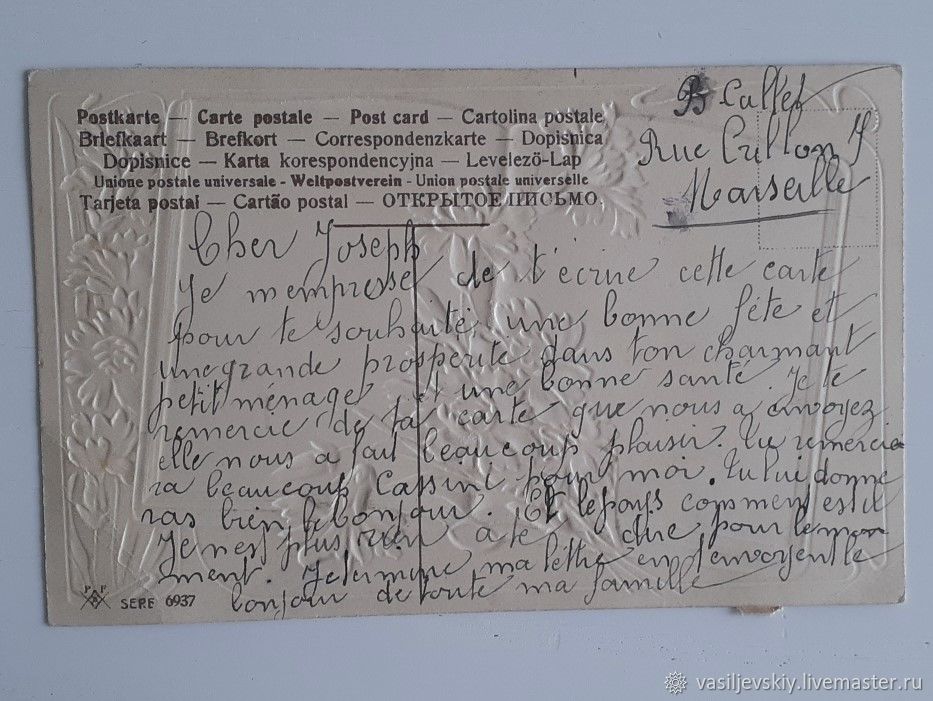 Postkarte — Carte postale — Post card — Cartolina postale
Briefkaart — Brefkort — Correspondenzkarte — Dopisnica
Dopisnice — Karta korespondencyjna — Levelező-Lap
Unione postale universale - Weltpostverein - Union postale universelle
Tarjeta postal — Cartão postal — ОТКРЫТОЕ ПИСЬМО.
B Callet
Rue Crillon 7
Marseille
Cher Joseph
Je mempresse de t'écrire cette carte
pour te souhaité une bonne fête et
une grande prosperité dans ton charmant
petit ménage et une bonne santé. Je te
remercie de ta carte que nous a envoyez
elle nous a fait beaucoup plaisir. Tu remercie
ra beaucoup Cassini pour moi. Tu lui donne
ras bien le bonjour. Et le pays comment es il
Je nest plus rien a te dire pour le mon
ment. Je termine ma lettre en t'envoyent le
bonjour de toute ma famille
P P
SERE 6937
vasiljevskiy.livemaster.ru